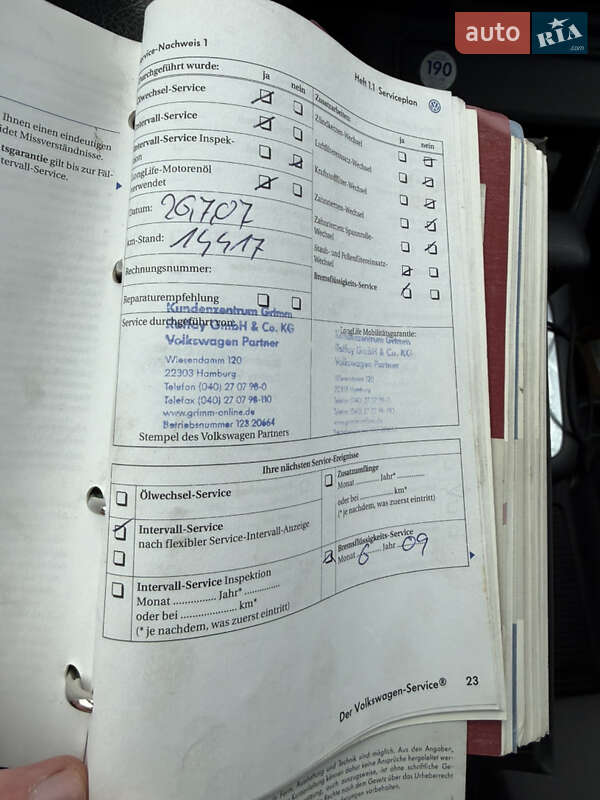 auto RIA .com
190
Ihnen einen eindeutigen
idet Missverständnisse.
tsgarantie gilt bis zur Fäl-
tervall-Service.
rvice-Nachweis 1
Heft 1.1 Serviceplan
Durchgeführt wurde: ja nein
Ölwechsel-Service
tervall-Service
tervall-Service Inspek-
on
LongLife-Motorenöl
verwendet
Datum: 26,7,07
km-Stand: 14417
Rechnungsnummer:
Reparaturempfehlung
Service durchgeführt von:
Kundenzentrum Grimm
Raffay GmbH & Co. KG
Volkswagen Partner
Wiesendamm 120
22303 Hamburg
Telefon (040) 27 07 98-0
Telefax (040) 27 07 98-110
www.grimm-online.de
Betriebsnummer 123 20664
Stempel des Volkswagen Partners
Zusatzarbeiten: ja nein
Zündkerzen-Wechsel
Luftfiltereinsatz-Wechsel
Kraftstofffilter-Wechsel
Zahnriemen-Wechsel
Zahnriemen: Spannrolle-
Wechsel
Staub- und Pollenfiltereinsatz-
Wechsel
Bremsflüssigkeits-Service
LongLife Mobilitätsgarantie:
Kundenzentrum Grimm
Raffay GmbH & Co. KG
Volkswagen Partner
Wiesendamm 120
22303 Hamburg
Ihre nächsten Service-Ereignisse
Ölwechsel-Service
Intervall-Service
nach flexibler Service-Intervall-Anzeige
Intervall-Service Inspektion
Monat ............... Jahr* ...............
oder bei .................... km*
(* je nachdem, was zuerst eintritt)
Zusatzumfänge
Monat .......... Jahr* ..........
oder bei ............... km*
(* je nachdem, was zuerst eintritt)
Bremsflüssigkeits-Service
Monat 6 Jahr 09
Der Volkswagen-Service® 23
Form, Ausstattung und Technik sind möglich. Aus den Angaben,
können daher keine Ansprüche hergeleitet wer-
auch auszugsweise, ist ohne schriftliche Ge-
Rechte nach dem Gesetz über das Urheberrecht
vorbehalten.